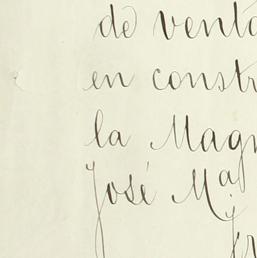 de venta
en constr
la Magn
José Maj
fr